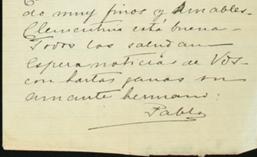 do muy finos y amables.
Clementina está buena.
Todos los saludan
espera noticias de Vds.
con hartas ganas su
amante hermano:
Pablo